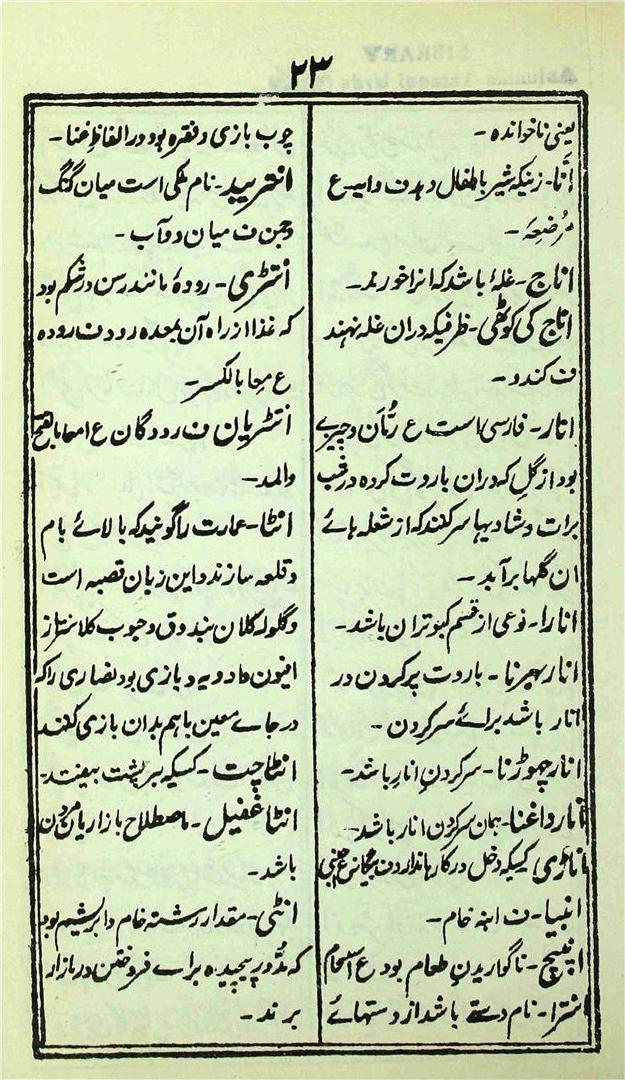 ۲۳
یعنی ناخوانده -
اَنّا - زنیکہ شیر باطفال دہد ف دایہ ع
مُرضِعَہ -
اناج - غلہ باشد کہ انرا خورند -
اناج کی کوٹھی - ظرفیکہ دران غلہ نہند
ف کندو -
انار - فارسی است ع رُمَّان و چیزے
بود از گلِ کہ دران باروت کردہ در شب
برات و شادیہا سر کنند کہ از شعلہ ہائے
ان گلہا بر آید -
انارا - نوعی از قسم کبوتران باشد -
انار بھرنا - باروت پر کردن در
انار باشد برائے سر کردن -
انار چھوڑنا - سر کردنِ انار باشد -
انار داغنا - ہمان سر کردن انار باشد -
اناڑی کسیکہ دخل در کارہا ندارد ف
انبیا - ف انبہ خام -
اپیچ - ناگواریدنِ طعام بود ع
انترا - نام دستے باشد از دستہائے
چوب بازی و فقرہ بود در الفاظِ غنا -
انتربید - نام ملکی است میان گنگ
و جمن ف میان دو آب -
انتڑی - رودۂ مانند رسن در شکم بود
کہ غذا از راہ آن بمعدہ رود ف رودہ
ع معا بالکسر -
انتڑیان ف رودگان ع امعا بالفتح
والمد -
انٹا - عمارت را گویند کہ بالائے بام
و قلعہ سازند و این زبان قصبہ است
و گلولہ کلان بندوق و حبوب کلانتر از
افیون و ادویہ و بازی بود نصاری را کہ
در جاے معین باہم بدان بازی کنند
انٹاچت - کسیکہ بر پشت بیفتد -
انٹا غفیل - باصطلاح بازاریان مردن
باشد -
انٹی - مقدار رشتہ خام و ابریشم بود
کہ مُدوّر پیچیدہ براے فروختن در بازار
برند -